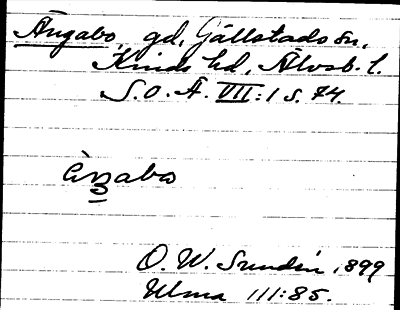 Ängabo, gd, Gällstads sn,
Kinds hd, Älvsb. l.
S.O.Ä. VII:1 s. 74.
O. W. Sundén 1899
Ulma 111:85.